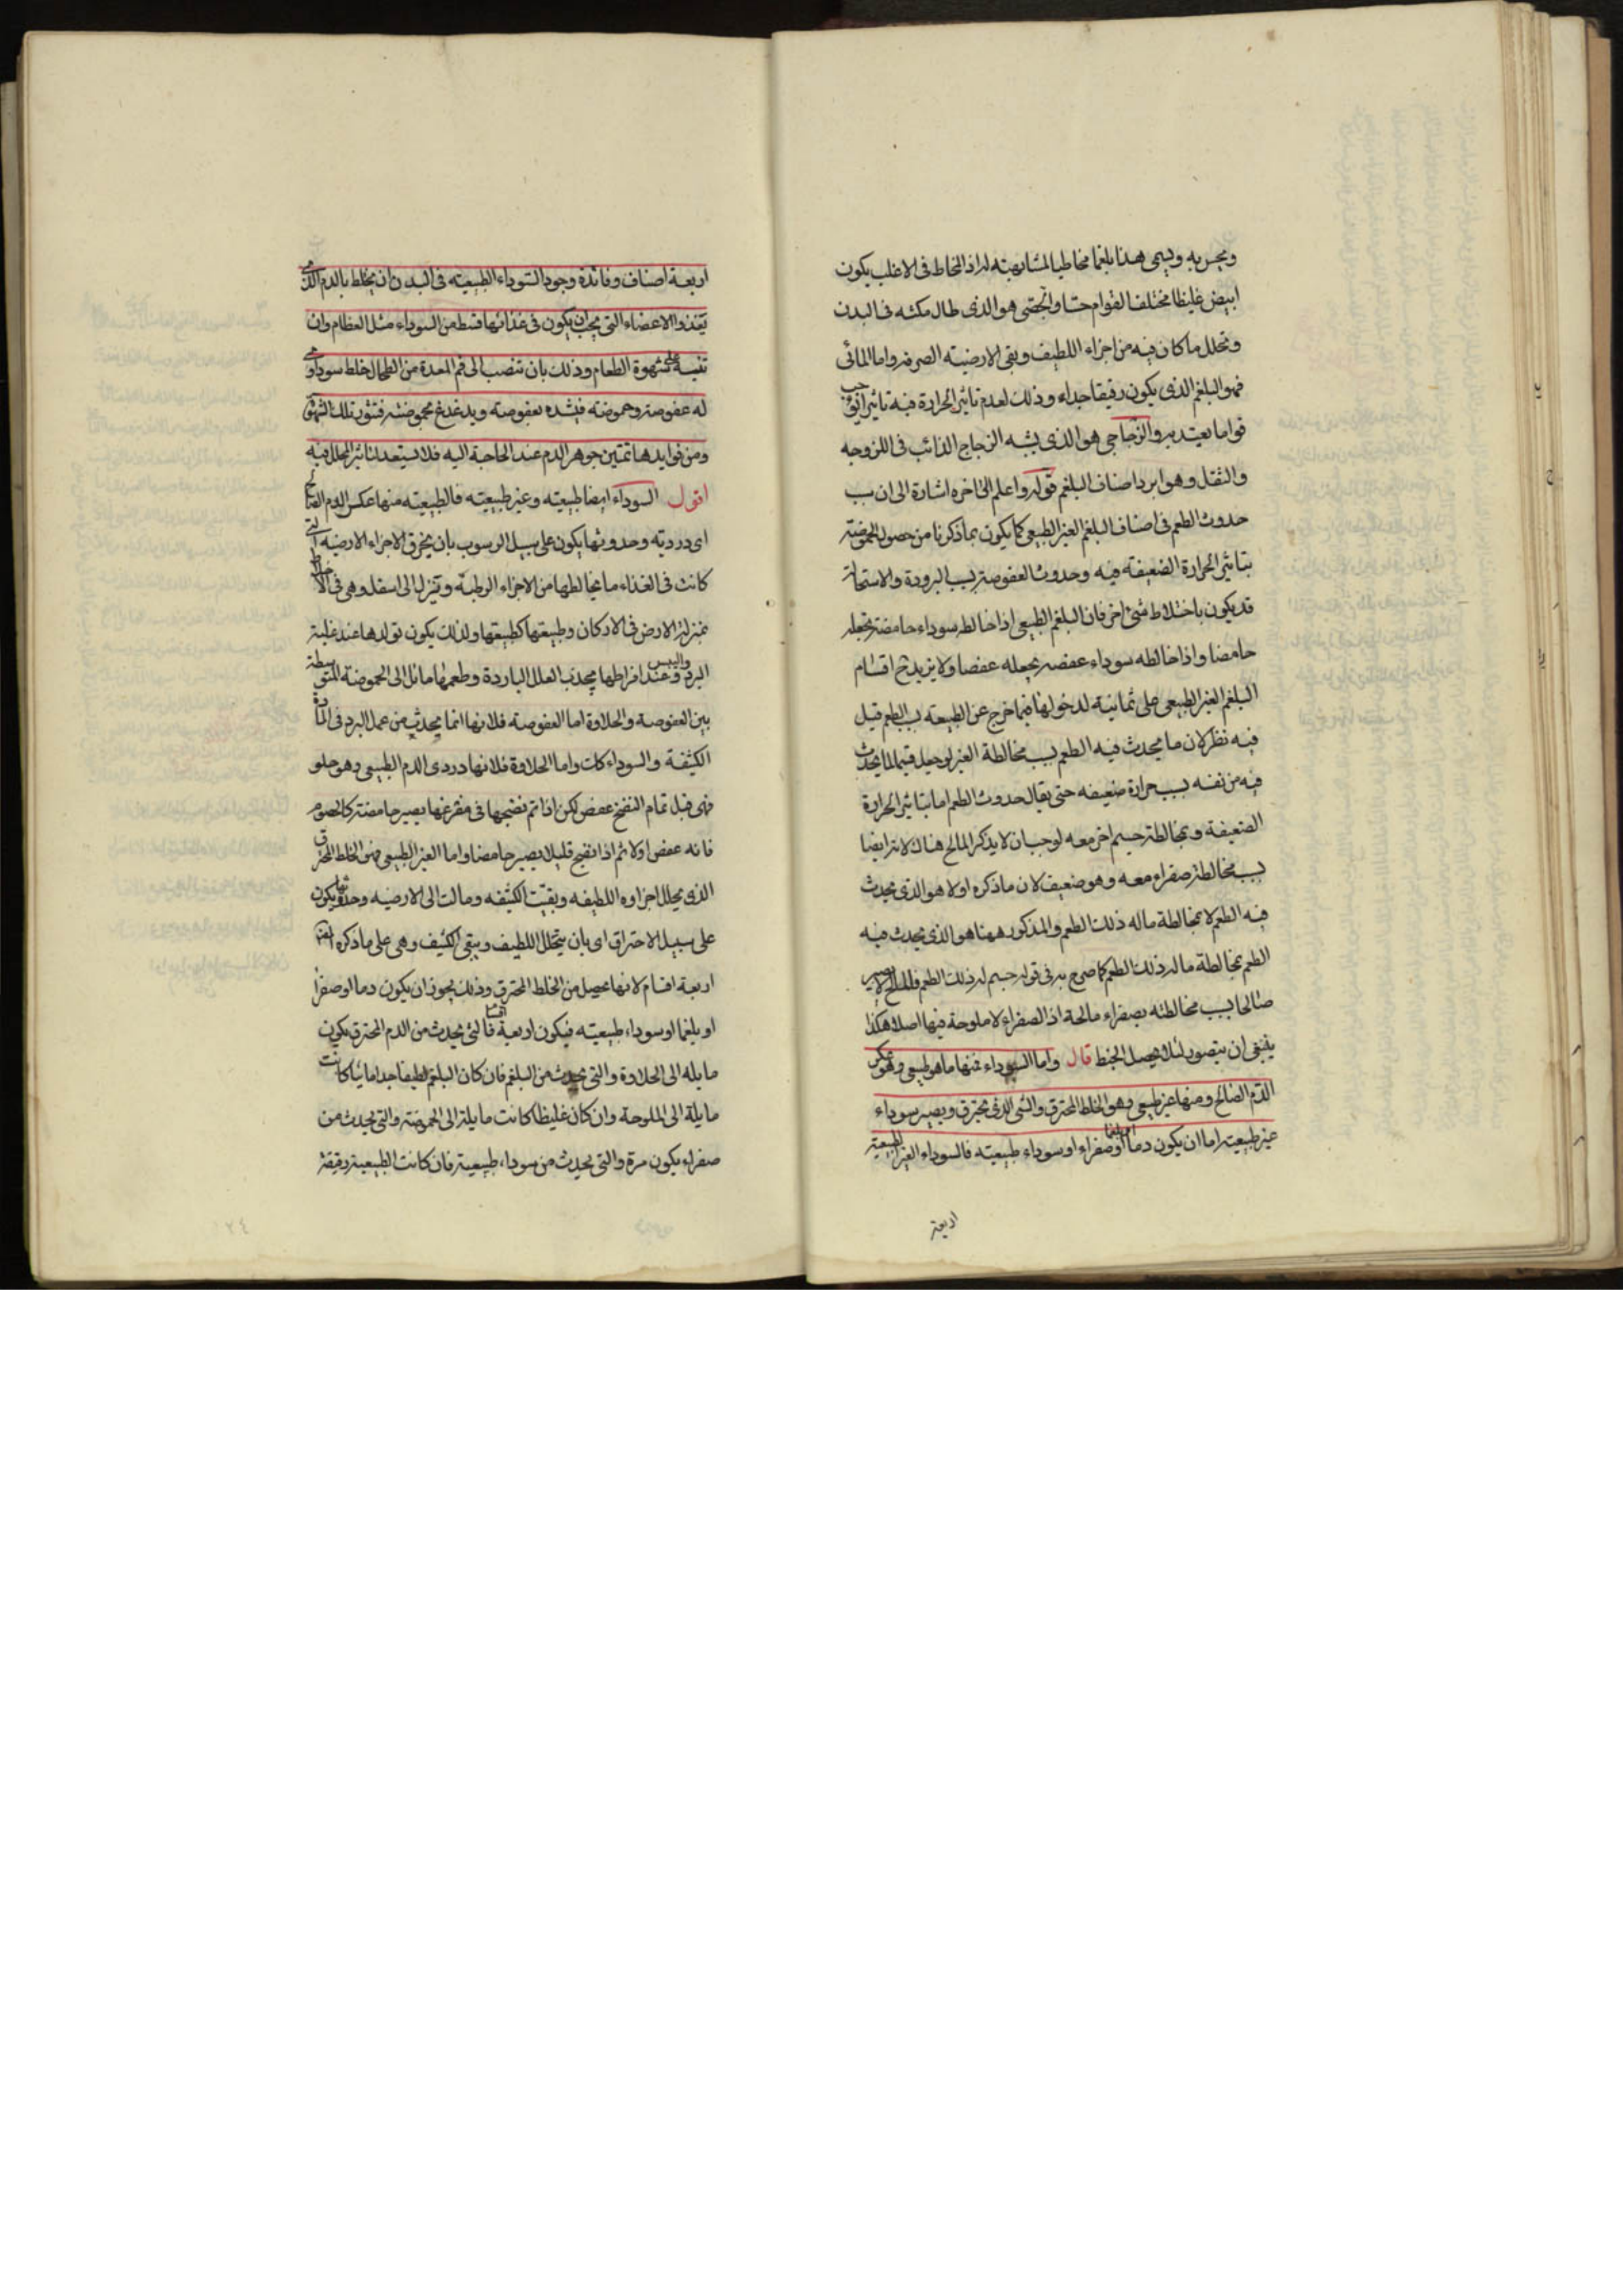 ويجربه ويسمى هذا بلغما مخاطيا لمشابهته له اذ المخاط فى الاغلب يكون
ابيض غليظا مختلف القوام حسا والجصى هو الذى طال مكثه فى البدن
وتحلل ما كان فيه من اجزاء اللطيف وبقى الارضية الصرفه واما المائى
فهو البلغم الذى يكون رقيقا جداء وذلك لعدم تاثير الحرارة فيه تاثيرا يوجب
قواما يعتد به والزجاجى هو الذى يشبه الزجاج الذائب فى اللزوجه
والثقل وهو ابرد اصناف البلغم قوله واعلم الى اخره اشارة الى ان سبب
حدوث الطعم فى اصناف البلغم الغير الطبيعى كما يكون بما ذكرنا من حصول الحموضة
بتاثير الحرارة الضعيفه فيه وحدوث العفوصة بسبب البرودة والاستحالة
قد يكون باختلاط شئ اخر فان البلغم الطبيعى اذا خالطه سوداء حامضة يجعله
حامضا واذا خالطه سوداء عفصه يجعله عفصا ولا يزيد ح اقسام
البلغم الغير الطبيعى على ثمانية لدخولها فيما خرج عن الطبيعه بسبب الطعم قيل
فيه نظر لان ما يحدث فيه الطعم بسبب مخالطة الغير لو جعل قسيما لما يحدث
فيه من نفسه بسبب حرارة ضعيفه حتى يقال حدوث الطعم اما بتاثير الحرارة
الضعيفة و بمخالطة جسم اخر معه لوجب ان لا يذكر المالح هناك لانه ايضا
بسبب مخالطة صفراء معه وهو ضعيف لان ما ذكره اولا هو الذى يحدث
فيه الطعم لا بمخالطة ماله ذلك الطعم والمذكور ههنا هو الذى يحدث فيه
الطعم بمخالطة ما له ذلك الطعم كما صرح به فى قوله جسم له ذلك الطعم فالمالح لا يصير
مالحا بسبب مخالطته بصفراء مالحة اذ الصفراء لا ملوحة فيها اصلا هكذا
ينبغى ان يتصور لئلا يحصل الخبط قال واما السوداء فمنها ما هو طبيعى وهو عكر
الدم الصالح ومنها غير طبيعى وهو الخلط المحترق والشى الذى يحترق ويصير سوداء
غير طبيعته اما ان يكون دما او بلغما او صفراء او سوداء طبيعته فالسوداء الغير الطبيعية
اربعة
اربعة اصناف وفائدة وجود السوداء الطبيعيه فى البدن ان يختلط بالدم الذى
يغذوا الاعضاء التى يجب ان يكون فى غذائها قسط من السوداء مثل العظام وان
تنبيه على شهوة الطعام وذلك بان تنصب الى فم المعدة من الطحال خلط سوداوى
له عفوصة وحموضه فيشده بعفوصته ويدغدغ بحموضته فتثور تلك الشهوة
ومن فوايدها تمتين جوهر الدم عند الحاجة اليه فلا يستعد لتاثير المحلل فيه
اقول السوداء ايضا طبيعيه وغير طبيعيه فالطبيعيه منها عكر الدم الصالح
اى درديه وحدوثها يكون على سبيل الرسوب بان يحترق الاجزاء الارضيه التى
كانت فى الغذاء ما يخالطها من الاجزاء الرطبه وتنزل الى اسفل وهى فى الاخلاط
بمنزلة الارض فى الاركان وطبيعتها كطبيعتها ولذلك يكون تولدها عند غلبة
البرد واليبس وعند افراطها يحدث العلل الباردة وطعمها مائل الى الحموضة المتوسطة
بين العفوصة والحلاوة اما العفوصه فلانها انما يحدث من عمل البرد فى المادة
الكثيفة والسوداء كك واما الحلاوة فلانها دردى الدم الطبيعى وهو حلو
فهى قبل تمام النضج عفص لكن اذا تم نضجها فى مفرغها يصير حامضة كالحصرم
فانه عفص اولا ثم اذا نضج قليلا يصير حامضا واما الغير الطبيعى فهو الخلط المحترق
الذى يحلل اجزاوه اللطيفه وبقيت الكثيفه ومالت الى الارضيه وحدوثها يكون
على سبيل الاحتراق اى بان يتحلل اللطيف ويبقى الكثيف وهى على ما ذكره المص
اربعة اقسام لانها يحصل من الخلط المحترق وذلك يجوز ان يكون دما او صفرا
او بلغما او سوداء طبيعيه فيكون اربعة اقسام فالتى يحدث من الدم المحترق يكون
مايله الى الحلاوة والتى يحدث من البلغم فان كان البلغم لطيفا جدا مائيا كانت
مايلة الى الملوحة وان كان غليظا كانت مايلة الى الحموضة والتى يحدث من
صفراء يكون مرة والتى يحدث من سوداء طبيعية فان كانت الطبيعية رقيقة
٢٤